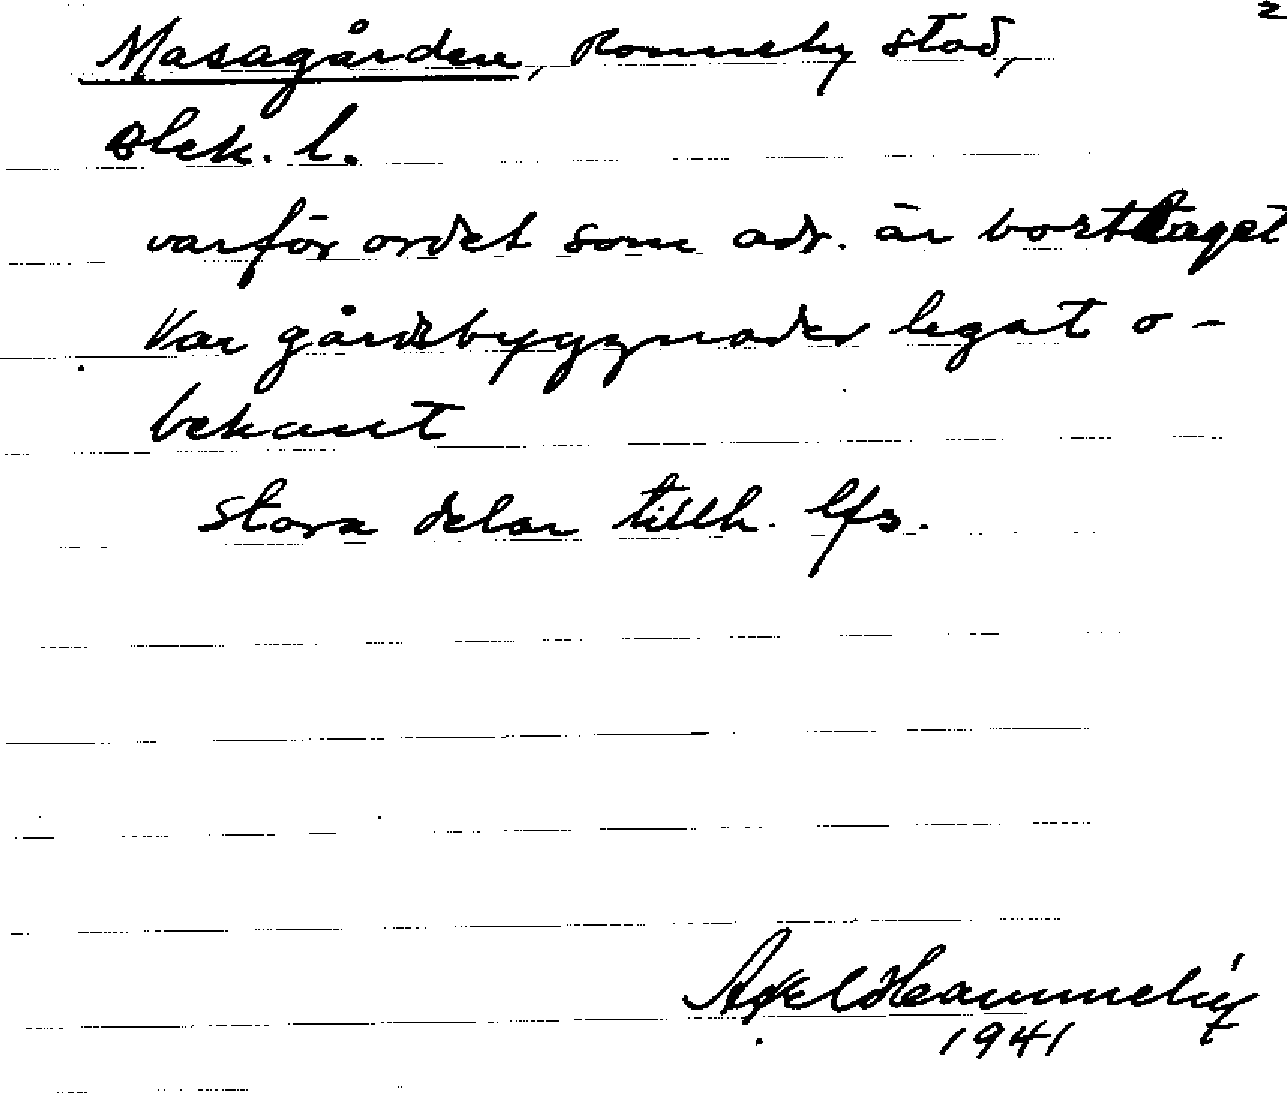 2
Masagården, Ronneby stad,
Blek. l.
varför ordet som adr. är borttaget
Var gårdsbyggnader legat o-
bekant
stora delar tillh. lfs.
Axel
1941